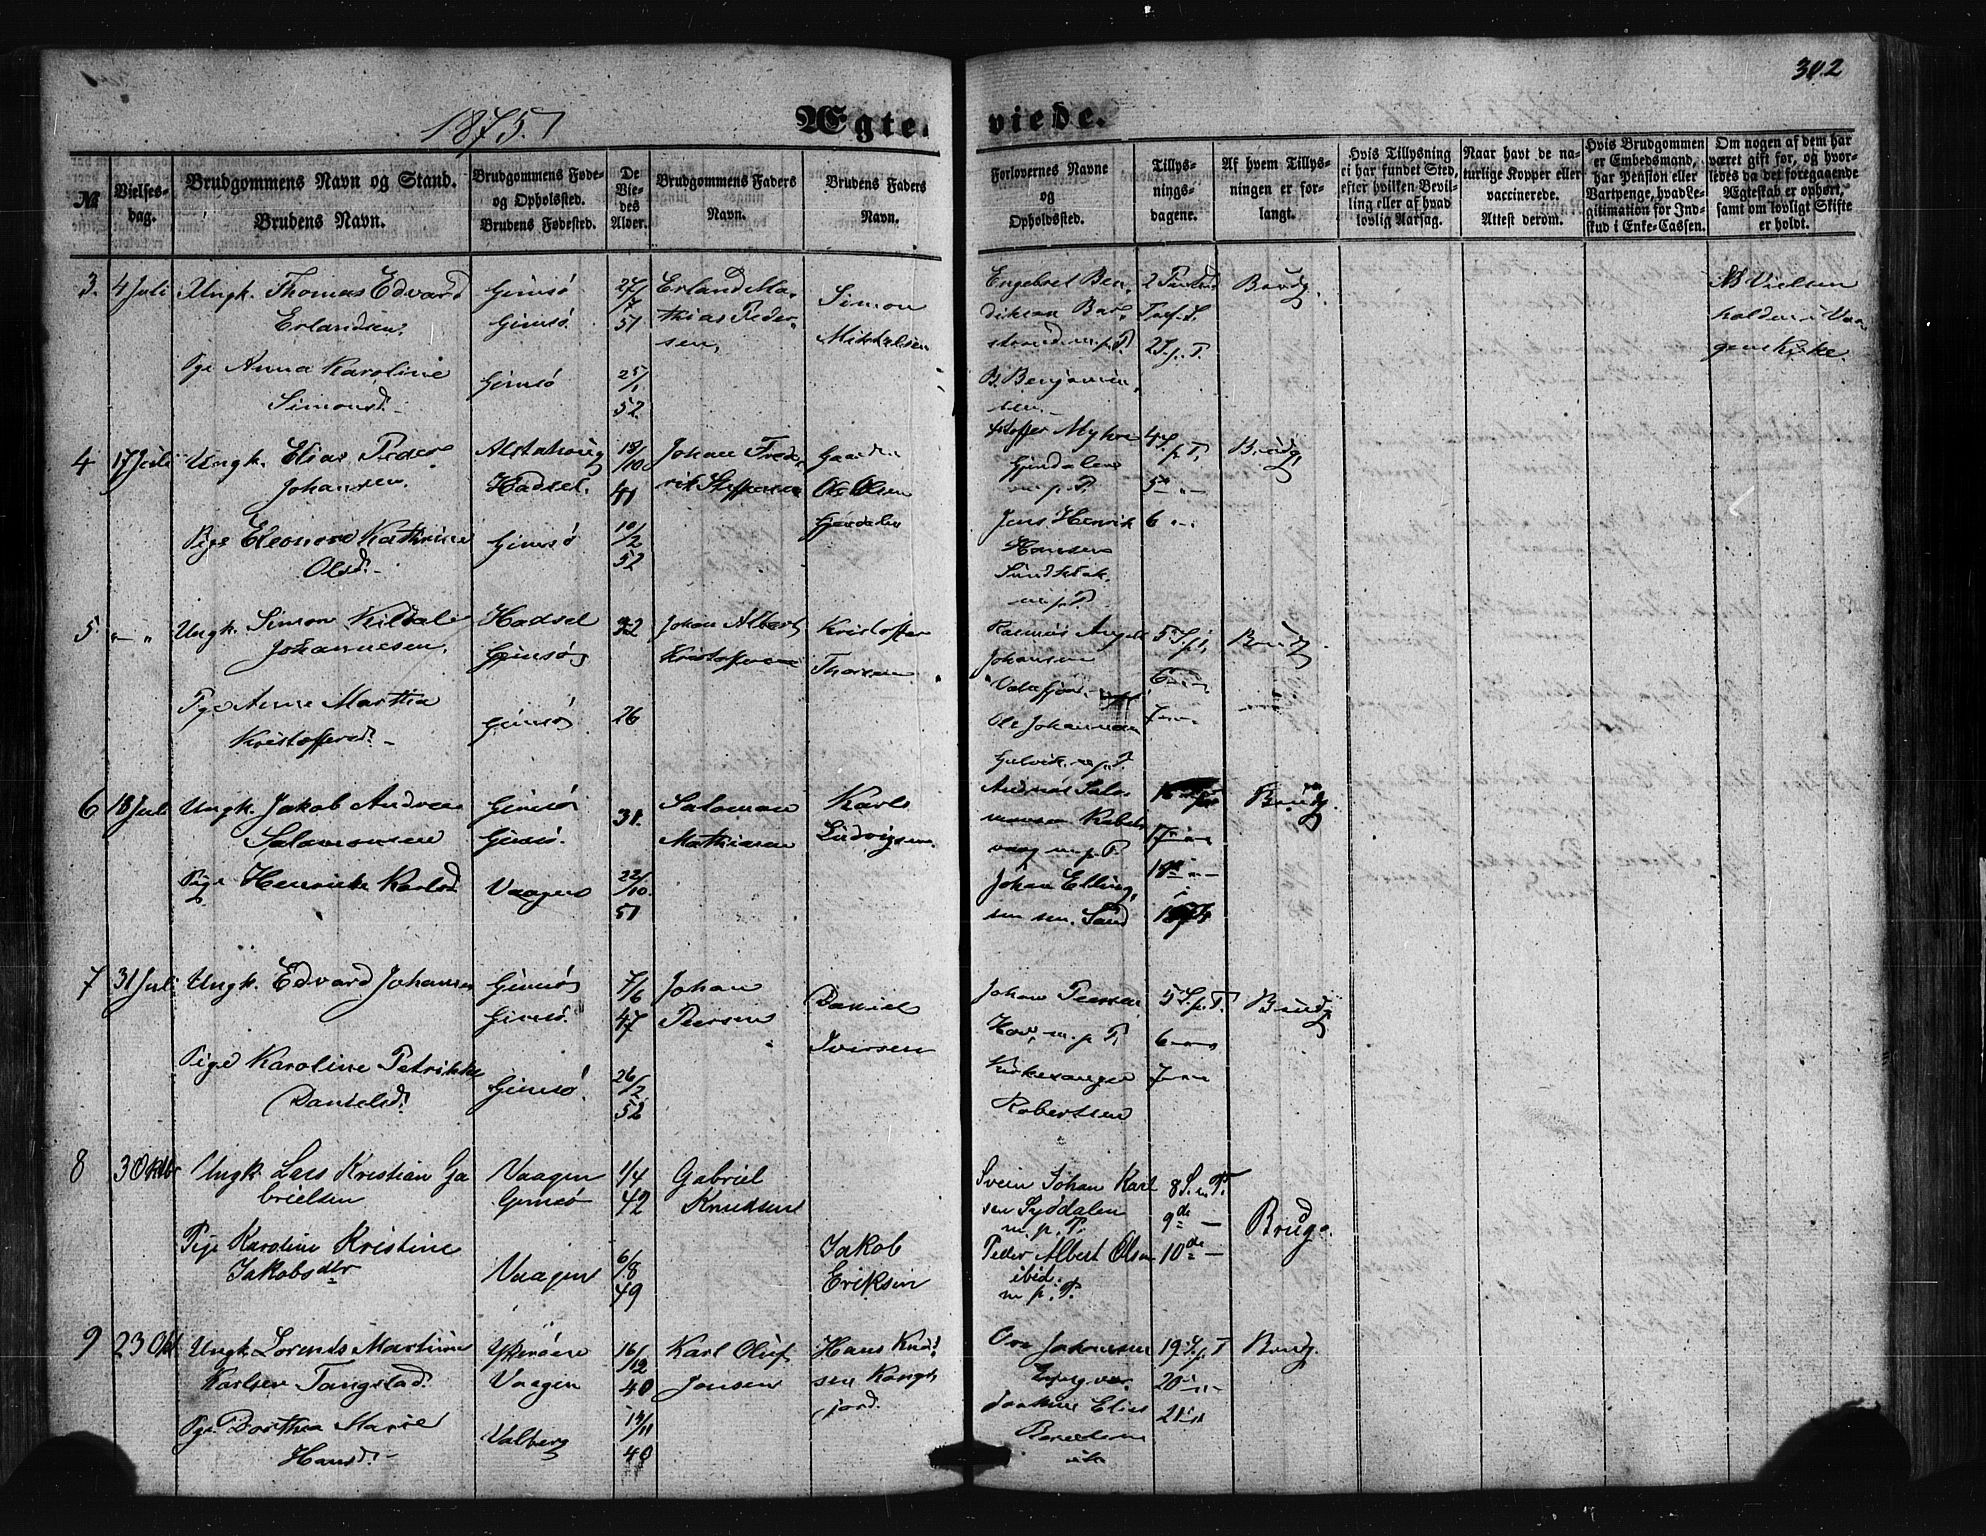 302
1875.
Ægte- viede.
№
Vielses-
dag.
Brudgommens Navn og Stand.
Brudens Navn.
Brudgommens Føde-
og Opholdssted.
Brudens Fødested.
De
Vie-
des
Alder.
Brudgommens Faders
Navn.
Brudens Faders
Navn.
Forlovernes Navne
og
Opholdssted.
Tillys-
nings-
dagene.
Af hvem Tillys-
ningen er for-
langt.
Hvis Tillysning
ei har fundet Sted,
efter hvilken Bevil-
ling eller af hvad
lovlig Aarsag.
Naar havt de na-
turlige Kopper eller
vaccinerede.
Attest derom.
Hvis Brudgommen
er Embedsmand,
har Pension eller
Vartpenge, hvad Le-
gitimation for Ind-
skud i Enke-Cassen.
Om nogen af dem har
været gift før, og hvor-
ledes da det foregaaende
Ægteskab er ophørt,
samt om lovligt Skifte
er holdt.
3. 4 Juli
Ungk. Thomas Edvard
Erlandsen.
Pige Anna Karoline
Simonsd.
Gimsø
Gimsø
Gimsø
27/7
51
25/1
52
Erland Ma-
thias Peder-
sen,
Simon
Mikkelsen
Engebret Ben-
diksen Bar-
strand m.p.P.
B. Benjamin-
sen.
2 P
Tref. S.
2 S.p.T.
Brudg.
NB Vielsen
holden i Vaa-
gens Kirke.
4 17 Juli
Ungk. Elias Peder
Johansen.
Pige Eleonore Kathrine
Olsd.
Alstahoug
Hadsel.
Gimsø
18/10
41
10/2
52
Johan Frede-
rik Steffensen
Gaardm.
Ole Olsen
Gjerdalen
Kstoffer Myhre
Gjerdalen
m.p.P.
Jens Henrik
Hansen
Sundklak
m.p.P.
4 S.p.T.
5 — " —
6 — " —
Brudg.
5. — " —
Ungk. Simon Kildal
Johannesen.
Pige Anne Martha
Kristoffersd.
Hadsel
Gimsø
Gimsø
32
26
Johan Albert
Kristoffersen
Kristoffer
Thorsen
Rasmus Angel
Johansen
Ole Johannesen
m.p.P.
5 S.p.T.
6 — " —
7 — " —
Brudg.
6 18 Juli
Ungk. Jakob Andreas
Salomonsen
Pige Henrikke Karlsd.
Gimsø
Gimsø.
Vaagen
31.
22/10
51
Salomon
Mathiasen
Karl
Ludvigsen.
Andreas Salo-
monsen Kabel-
vaag m.p.P.
Johan Elling-
sen sen. Sand
17 — " —
18 — " —
Brudg.
7 31 Juli
Ungk. Edvard Johansen
Pige Karoline Petrikke
Danielsd.
Gimsø
Gimsø.
Gimsø.
7/6
47
26/2
52
Johan
Peersen
Daniel
Iversen
Johan Peersen
Hov, m.p.P.
Kirkesanger
Robertsen
5 S.p.T.
6 — " —
7 — " —
Brudg.
8 3 Oktbr
Ungk. Lars Kristian Ga
brielsen
Pige Karoline Kristine
Jakobsdtr
Vaagen
Gimsø
Vaagen
1/4
42
6/8
49
Gabriel
Knudsen
Jakob
Eriksen
Svein Johan Karl
sen Syddalen
m. p. P.
Peder Albert Olsen
ibid.
m. p. P.
8 S. p. T.
9de —
10de —
Brudg.
9 23 Okt.
Ungk. Lorents Martin
Karlsen Tangstad.
Pige Dorthea Marie
Hansd.
Ytterøen
Vaagen
Valberg
16/12
40
14/11
40
Karl Oluf
Jonsen
Hans Knud-
sen Kongs
jord.
Ove Johansen
Joakim Elias
Berntsen
19 S.p.T.
20 — " —
21 — " —
Brudg.